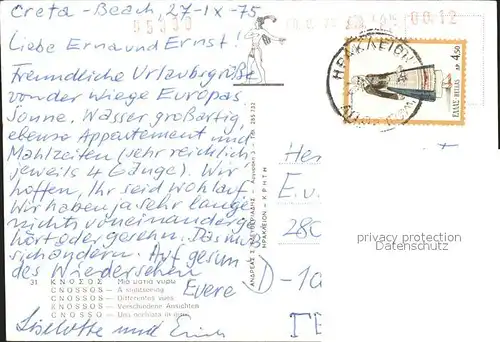 Creta - Beach 27-IX-75
Liebe Erna und Ernst!
Freundliche Urlaubsgrüße
von der Wiege Europas.
Sonne. Wasser großartig,
ebenso Appartement und
Mahlzeiten (sehr reichlich,
jeweils 4 Gänge). Wir
hoffen, Ihr seid wohlauf.
Wir haben ja sehr lange
nichts voneinander ge
hört oder gesehen. Das muß
sich ändern. Auf gesun
des Wiedersehen
Euere
Liselotte und Erich
31 ΚΝΩΣΟΣ – Μιά ματιά γύρω
CNOSSOS – A shatsoaring
CNOSSOS – Differentes vues
CNOSSOS – Verschiedene Ansichten
CNOSSO – Una occhiata in giro
ΗΡΑΚΛΕΙΟΝ – ΚΡΗΤΗ
00.12
ΗΡΑΚΛΕΙΟΝ
ΕΛΛΑΣ-HELLAS
ΔΡ. 4,50
He
E. u.
280
D-
privacy protection
Datenschutz